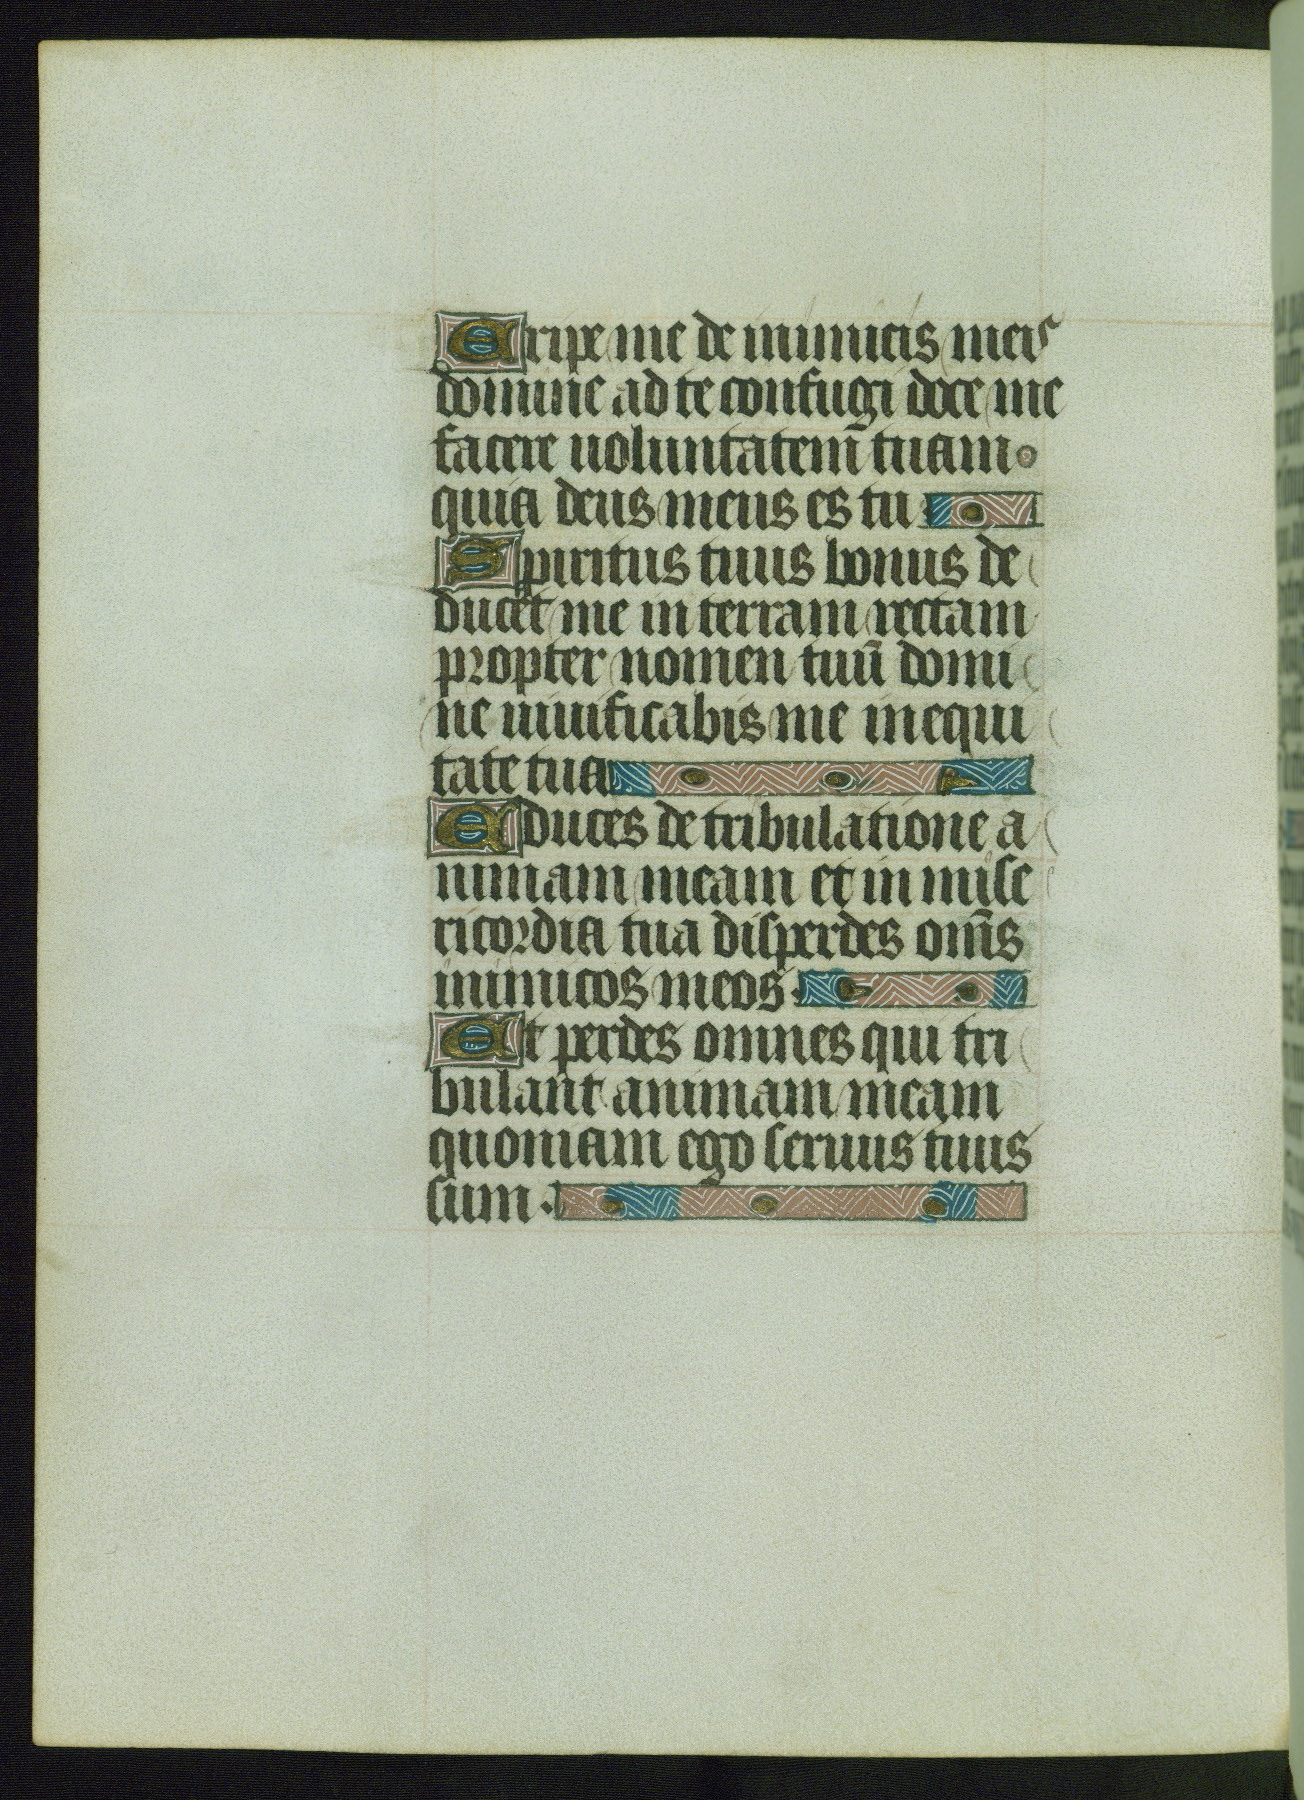 Eripe me de inimicis meis
domine ad te confugi doce me
facere uoluntatem̄ tuam
quia deus meus es tu
Spiritus tuus bonus de
ducet me in terram rectam
propter nomen tuū domi
ne uiuificabis me in equi
tate tua
Educes de tribulatione a
nimam meam et in mise
ricordia tua disperdes om̄s
inimicos meos.
Et perdes omnes qui tri
bulant animam meam
quoniam ego seruus tuus
sum.